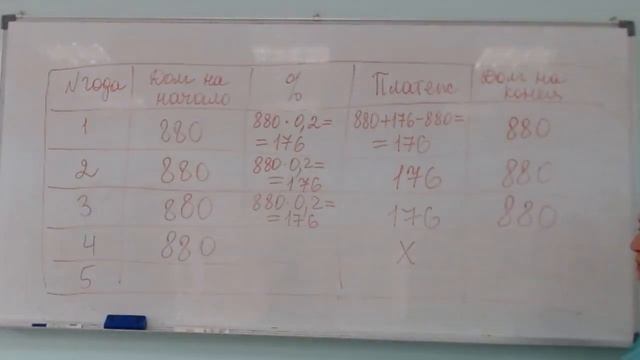 № года Долг на начало % Платеж Долг на конец
1 880 880·0,2= =176 880+176-880= =176 880
2 880 880·0,2= =176 176 880
3 880 880·0,2= =176 176 880
4 880 X
5